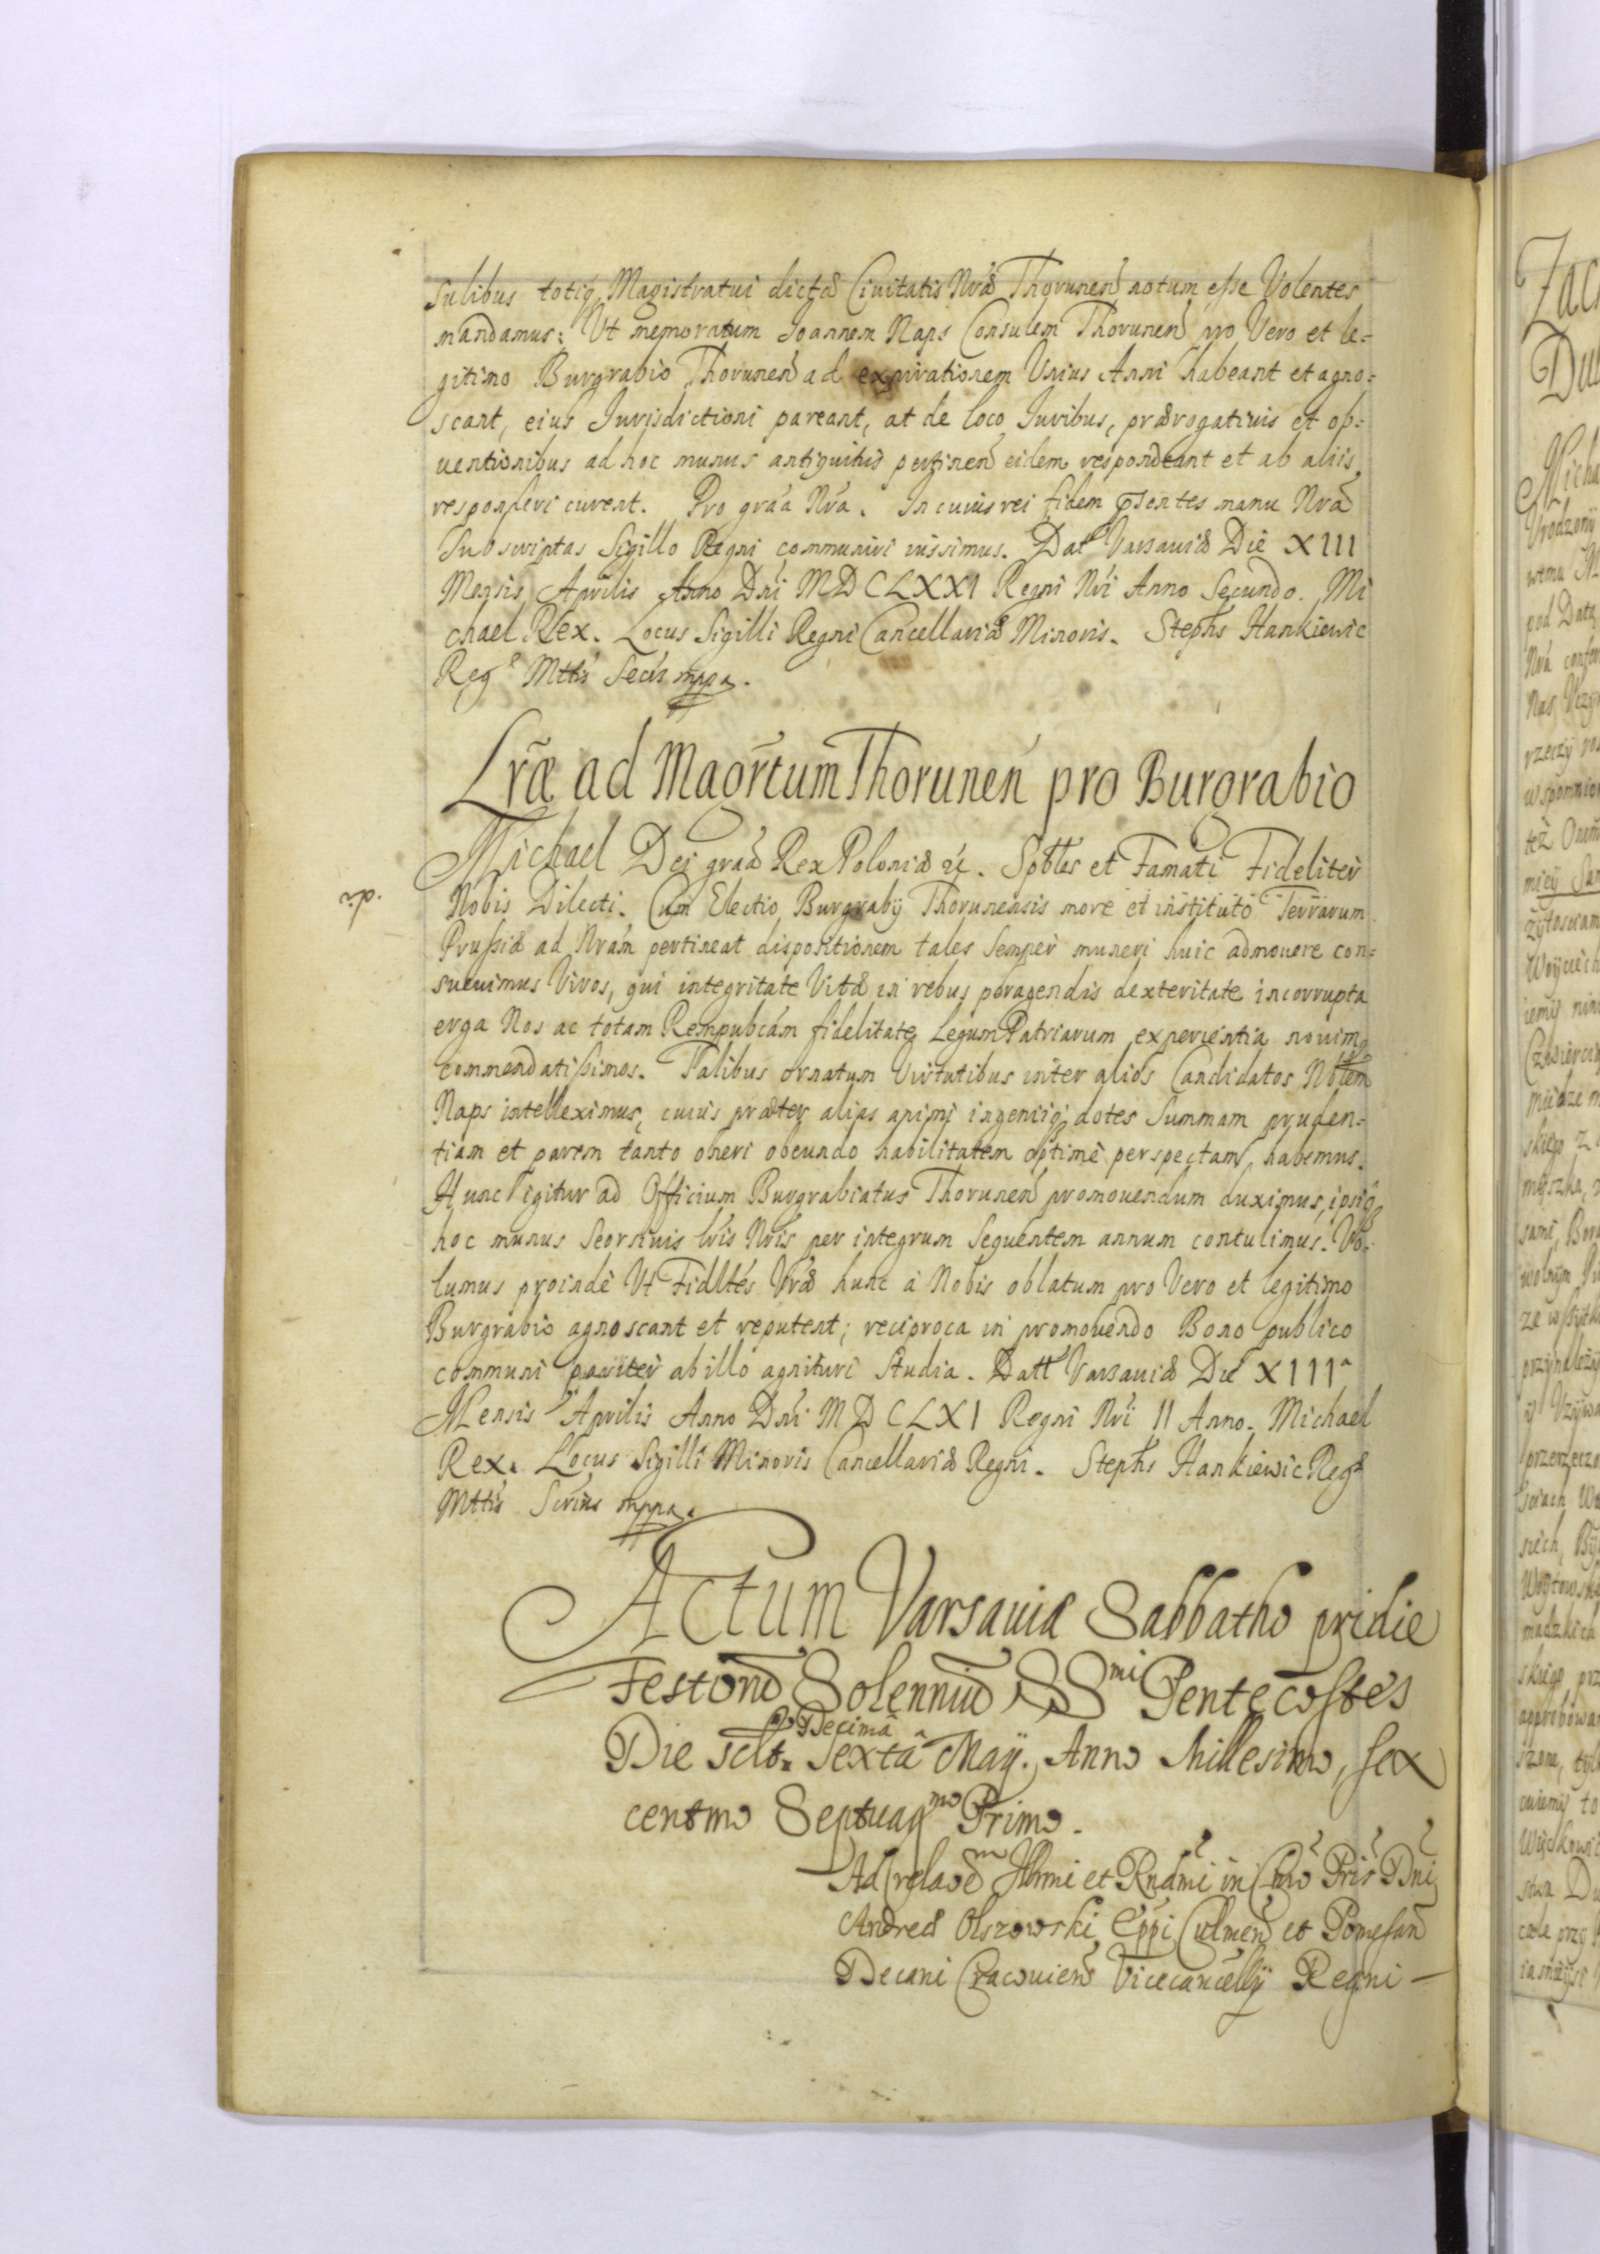 sulibus totiq Magistratui dictæ Civitatis Nræ Thorunen notum esse Volentes
mandamus: Vt memoratum Joannem Naps Consulem Thorunen pro Vero et le=
gitimo Burgrabio Thorunen ad expirationem Unius Anni habeant et agno=
scant, eius Jurisdictioni pareant, at de loco Juribus, prærogativis et ob=
uentionibus ad hoc munus antiquitus pertinen eidem respondeant et ab aliis
responderi curent. Pro gráa Nrá. In cuius rei fidem pñtes manu Nrá
Subscriptas Sigillo Regni communiri iussimus. Dat Varsauiæ Die XIII
Mensis Aprilis Anno Dni MDCLXXI Regni Nri Anno Secundo. Mi
chael Rex. Locus Sigilli Regni Cancellariæ Minoris. Stephs Hankiewic
Regæ Mttis Secrs mppa.
Lræ ad Maõrtum Thorunen pro Burgrabio
Michael Dei graã Rex Poloniæ &. Spbles et Famati Fideliter
Nobis Dilecti. Cum Electio Burgrabij Thorunensis more et instituto Terrarum
Prussiæ ad Nrám pertineat dispositionem tales Semper muneri huic admouere con=
sueuimus Viros, qui integritate Vitæ in rebus peragendis dexteritate incorrupta
erga Nos ac totam Rempubcám fidelitate Legum Patriarum experientia nouimq
commendatissimos. Talibus ornatum Virtutibus inter alios Candidatos Nblem
Naps intelleximus, cuius præter alias animi ingeniiq dotes Summam pruden=
tiam et parem tanto oneri obeundo habilitatem optimè perspectam habemus.
Hunc igitur ad Officium Burgrabiatus Thorunen promouendum duximus, ipsiq
hoc munus Seorsiuis lris Nris per integrum Sequentem annum contulimus. Vo=
lumus proinde Vt Fidltes Vræ hunc à Nobis oblatum pro Vero et legitimo
Burgrabio agnoscant et reputent; reciproca in promouendo Bono publico
communi pariter ab illo agnituri Studia. Datt Varsauiæ Die XIIIa
Mensis Aprilis Anno Dni MDCLXI Regni Nri II Anno. Michael
Rex. Locus Sigilli Minoris Cancellariæ Regni. Stephs Hankiewic Regæ
Mttis Scrius mppa.
Actum Varsauiæ Sabbatho pridie
Festorũ Solenniũ SSmi Pentecostes
Decimâ
Die sclt. Sextâ Maij. Anno Millesimo, sex
centmo Septuagmo Primo.
Ad relaoẽm Illmi et Rndmi in Chro Pris Dni
Andreæ Olszowski Eppi Culmen et Pomesan
Decani Cracouien Vicecancellij Regni